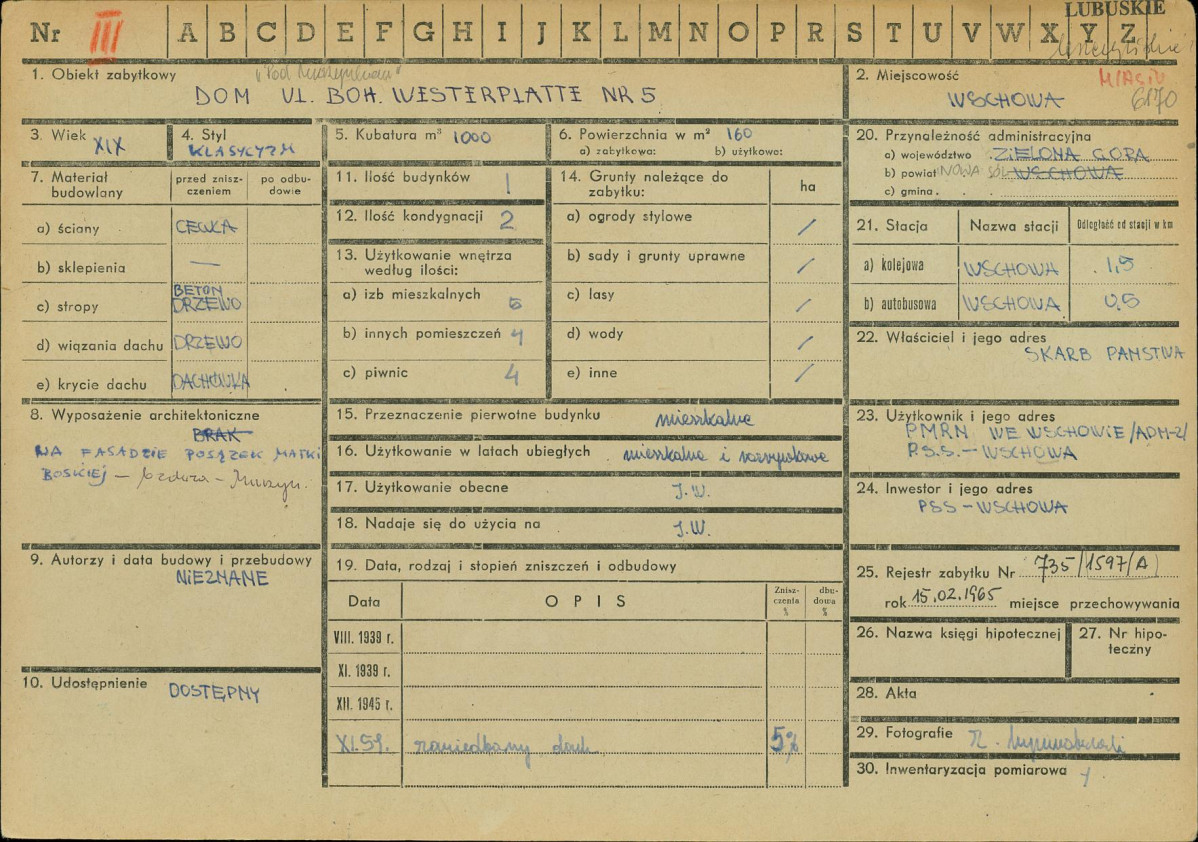 LUBUSKIE
Nr III A B C D E F G H I J K L M N O P R S T U V W X Y Z
1. Obiekt zabytkowy "Pod
DOM UL. BOH. WESTERPLATTE NR 5
2. Miejscowość
MIASTO
WSCHOWA 6170
3. Wiek XIX
4. Styl
KLASYCYZM
5. Kubatura m³ 1000
6. Powierzchnia w m² 160
a) zabytkowa: b) użytkowa:
20. Przynależność administracyjna
a) województwo ZIELONA GÓRA
b) powiat NOWA SÓL WSCHOWA
c) gmina
7. Materiał budowlany
przed zniszczeniem
po odbudowie
a) ściany CEGŁA
b) sklepienia —
c) stropy BETON
DRZEWO
d) wiązania dachu DRZEWO
e) krycie dachu DACHÓWKA
11. Ilość budynków 1
12. Ilość kondygnacji 2
13. Użytkowanie wnętrza
według ilości:
a) izb mieszkalnych 5
b) innych pomieszczeń 4
c) piwnic 4
14. Grunty należące do
zabytku: ha
a) ogrody stylowe /
b) sady i grunty uprawne /
c) lasy /
d) wody /
e) inne /
21. Stacja Nazwa stacji Odległość od stacji w km
a) kolejowa WSCHOWA 1,5
b) autobusowa WSCHOWA 0,5
22. Właściciel i jego adres
SKARB PAŃSTWA
8. Wyposażenie architektoniczne
BRAK
NA FASADZIE POSĄŻEK MATKI
BOSKIEJ –
15. Przeznaczenie pierwotne budynku mieszkalne
16. Użytkowanie w latach ubiegłych mieszkalne i rozrywkowe
17. Użytkowanie obecne J.W.
18. Nadaje się do użycia na J.W.
23. Użytkownik i jego adres
PMRN WE WSCHOWIE /ADM-2/
P.S.S. – WSCHOWA
24. Inwestor i jego adres
PSS – WSCHOWA
9. Autorzy i data budowy i przebudowy
NIEZNANE
10. Udostępnienie DOSTĘPNY
19. Data, rodzaj i stopień zniszczeń i odbudowy
Data OPIS Zniszczenia % dbudowa %
VIII. 1939 r.
XI. 1939 r.
XII. 1945 r.
XI.59. zaniedbany dach 5%
25. Rejestr zabytku Nr 735/1597/A
rok 15.02.1965 miejsce przechowywania
26. Nazwa księgi hipotecznej
27. Nr hipoteczny
28. Akta
29. Fotografie
30. Inwentaryzacja pomiarowa